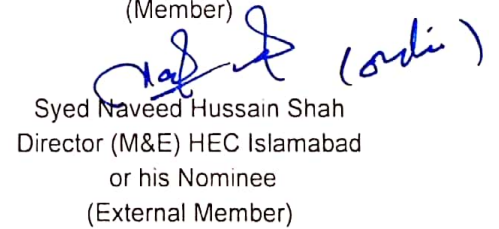 (Member)
Syed Naveed Hussain Shah
Director (M&E) HEC Islamabad
or his Nominee
(External Member)